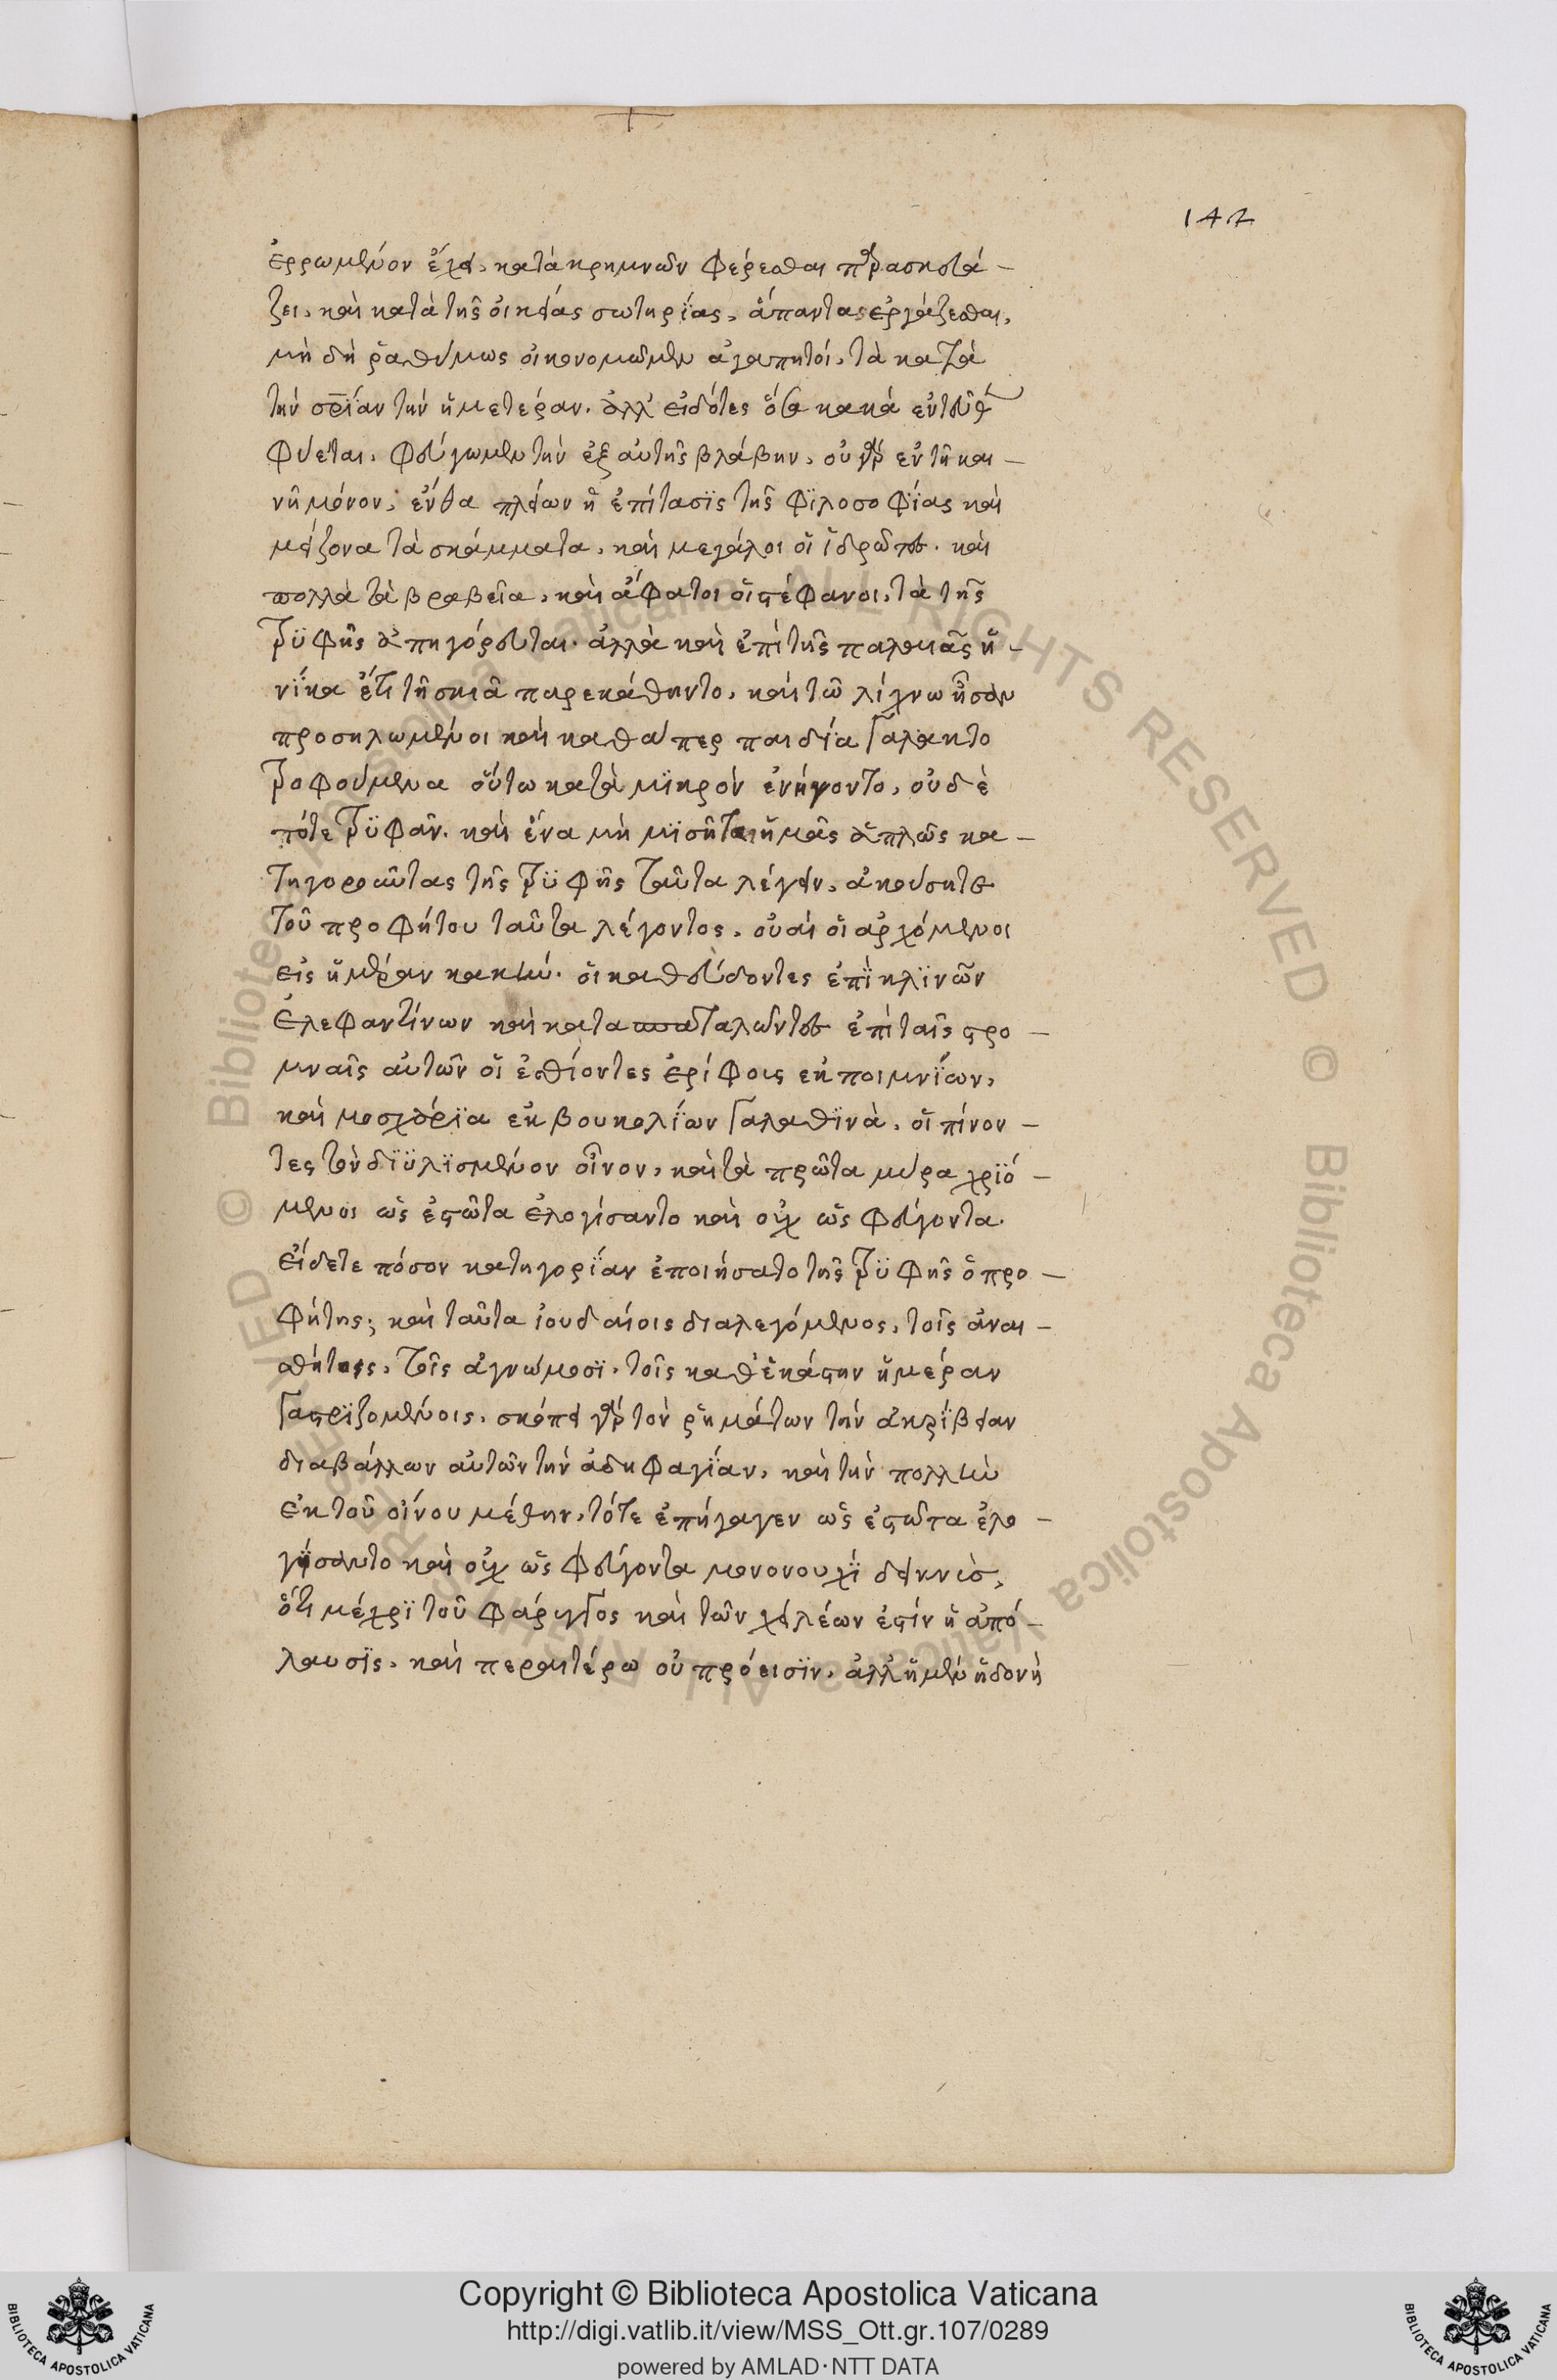 147
ἐρρωμένον ἔχει, κατὰ κρημνῶν φέρεσθαι παρασκευά-
ζει, καὶ κατὰ τῆς οἰκείας σωτηρίας, ἅπαντας ἐργάζεσθαι,
μὴ δὴ ῥαθύμως οἰκονομῶμεν ἀγαπητοί, τὰ κατὰ
τὴν σρίαν τὴν ἡμετέραν. ἀλλ' εἰδότες ὅσα κακὰ ἐντεῦθεν
φύεται, φεύγωμεν τὴν ἐξ αὐτῆς βλάβην, οὐ γὰρ ἐν τῇ και-
νῇ μόνον, ἔνθα πλείων ἡ ἐπίτασις τῆς φιλοσοφίας καὶ
μείζονα τὰ σκάμματα, καὶ μεγάλοι οἱ ἱδρῶτες. καὶ
πολλὰ τὰ βραβεῖα, καὶ ἄφατοι οἱ στέφανοι, τὰ τῆς
τρυφῆς ἀπηγόρευται. ἀλλὰ καὶ ἐπὶ τῆς παλαιᾶς ἡ-
νίκα ἔτι τῇ σκιᾷ παρεκάθηντο, καὶ τῷ λύχνω ἦσαν
προσηλωμένοι καὶ καθάπερ παιδία γαλακτο
τροφούμενα οὕτω κατὰ μικρὸν ἐνήγοντο, οὐδὲ
πότε τρυφᾶν. καὶ ἵνα μὴ μισῆται ἡμᾶς ἁπλῶς κα-
τηγοροῦντας τῆς τρυφῆς ταῦτα λέγειν, ἀκούσητε
τοῦ προφήτου ταῦτα λέγοντος, οὐαὶ οἱ ἀρχόμενοι
εἰς ἡμέραν κακήν. οἱ καθεύδοντες ἐπὶ κλινῶν
ἐλεφαντίνων καὶ κατασπαταλῶντες ἐπὶ ταῖς στρο-
μναῖς αὐτῶν οἱ ἐσθίοντες ἐρίφοις ἐκ ποιμνίων,
καὶ μοσχάρια ἐκ βουκολίων γαλαθινὰ, οἱ πίνον-
τες τὸν διϋλισμένον οἶνον, καὶ τὰ πρῶτα μύρα χριό-
μενοι ὡς ἑστῶτα ἐλογίσαντο καὶ οὐχ ὡς φεύγοντα.
εἴδετε πόσον κατηγορίαν ἐποιήσατο τῆς τρυφῆς ὁ προ-
φήτης; καὶ ταῦτα ἰουδαίοις διαλεγόμενος, τοῖς ἀναι-
σθήτοις, τοῖς ἀγνώμοσι, τοῖς καθ' ἑκάστην ἡμέραν
γαστριζομένοις, σκόπει γὰρ τὸν ῥημάτων τὴν ἀκρίβειαν
διαβάλλων αὐτῶν τὴν ἀδηφαγίαν, καὶ τὴν πολλὴν
ἐκ τοῦ οἴνου μέθην, τότε ἐπήγαγεν ὡς ἑστῶτα ἐλο-
γίσαντο καὶ οὐχ ὡς φεύγοντα μονονουχὶ δεικνὺς,
ὅτι μέχρι τοῦ φάρυγγος καὶ τῶν χειλέων ἐστὶν ἡ ἀπό-
λαυσις, καὶ περαιτέρω οὐ πρόεισιν, ἀλλ' ἡ μὲν ἡδονὴ
© Biblioteca Apostolica Vaticana ALL RIGHTS RESERVED
Copyright © Biblioteca Apostolica Vaticana
http://digi.vatlib.it/view/MSS_Ott.gr.107/0289
powered by AMLAD·NTT DATA
BIBLIOTECA APOSTOLICA VATICANA
BIBLIOTECA APOSTOLICA VATICANA